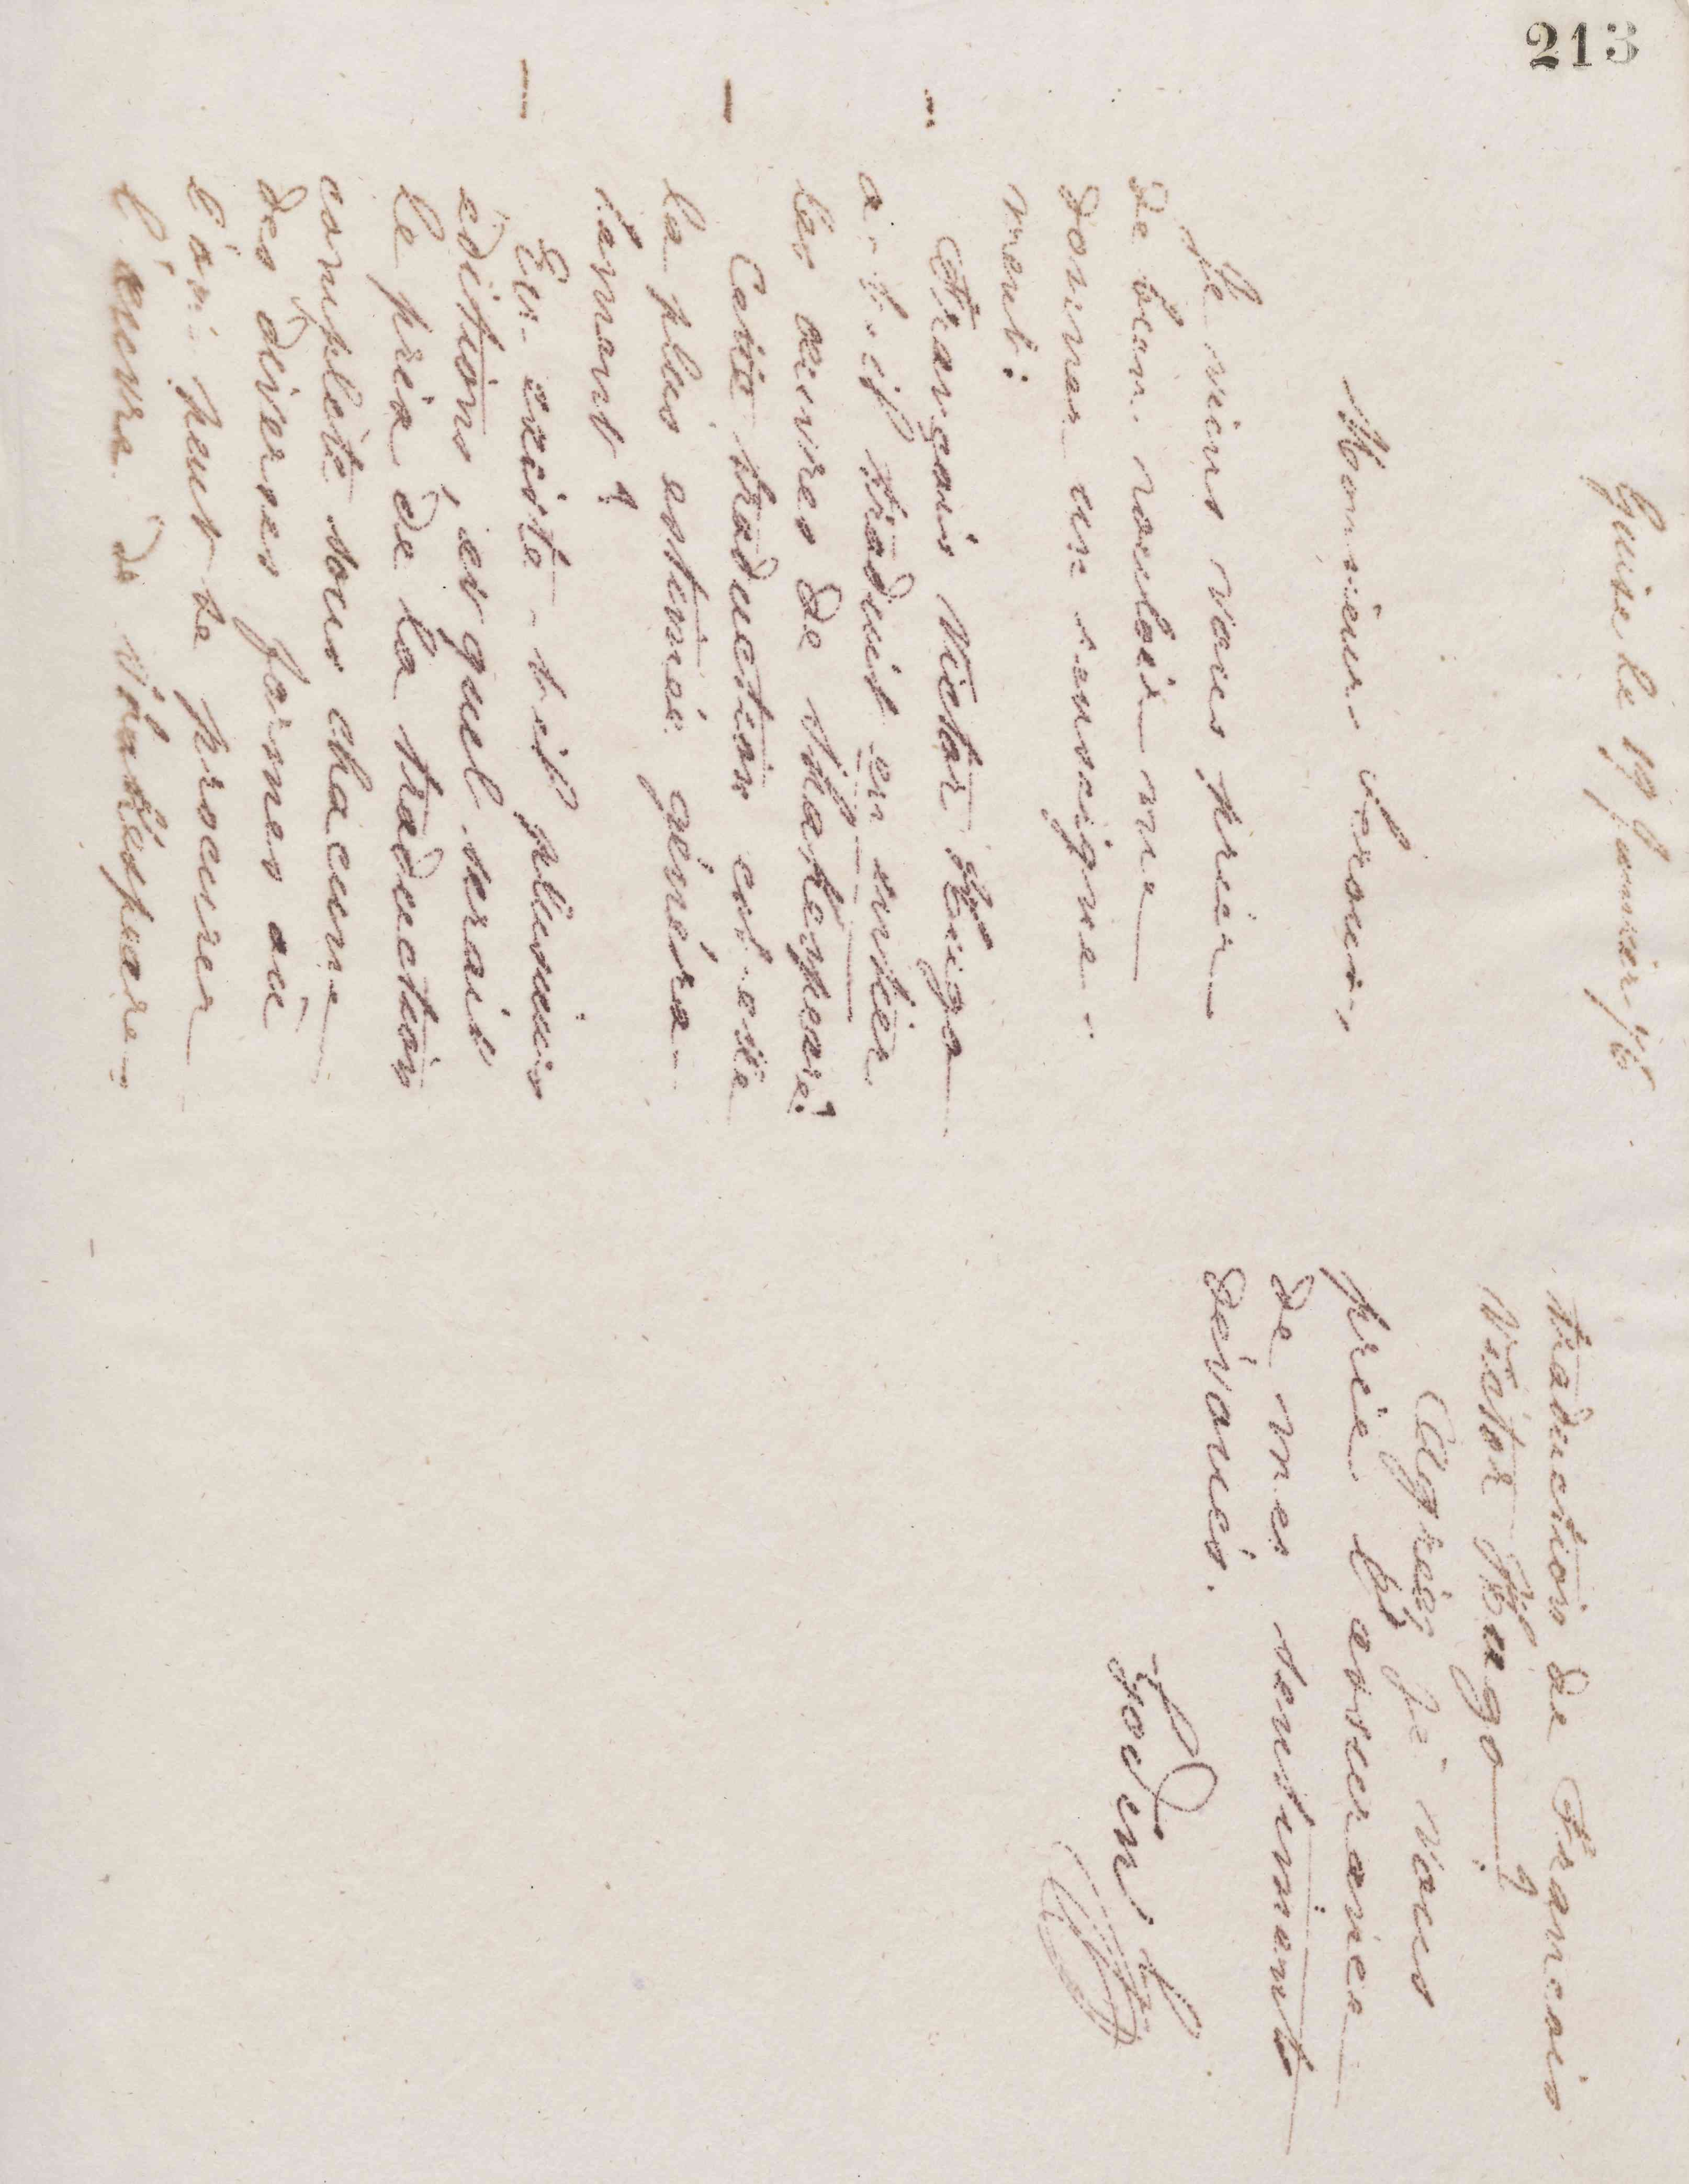 213
Guise le 19 Janvier 76
Monsieur Leroux,
Je viens vous prier
de bien vouloir me
donner un renseigne-
ment:
François Victor Hugo
a-t-il traduit en entier
les œuvres de Shakespeare?
Cette traduction est-elle
la plus estimée généra-
lement?
En existe-t-il plusieurs
éditions, et quel serait
le prix de la traduction
complète sous chacune
des diverses formes où
l'on peut se procurer
l'œuvre de Shakespeare,
traduction de Francois
Victor Hugo?
Agréez je vous
prie l'assurance
de mes sentiments
dévoués.
Godin